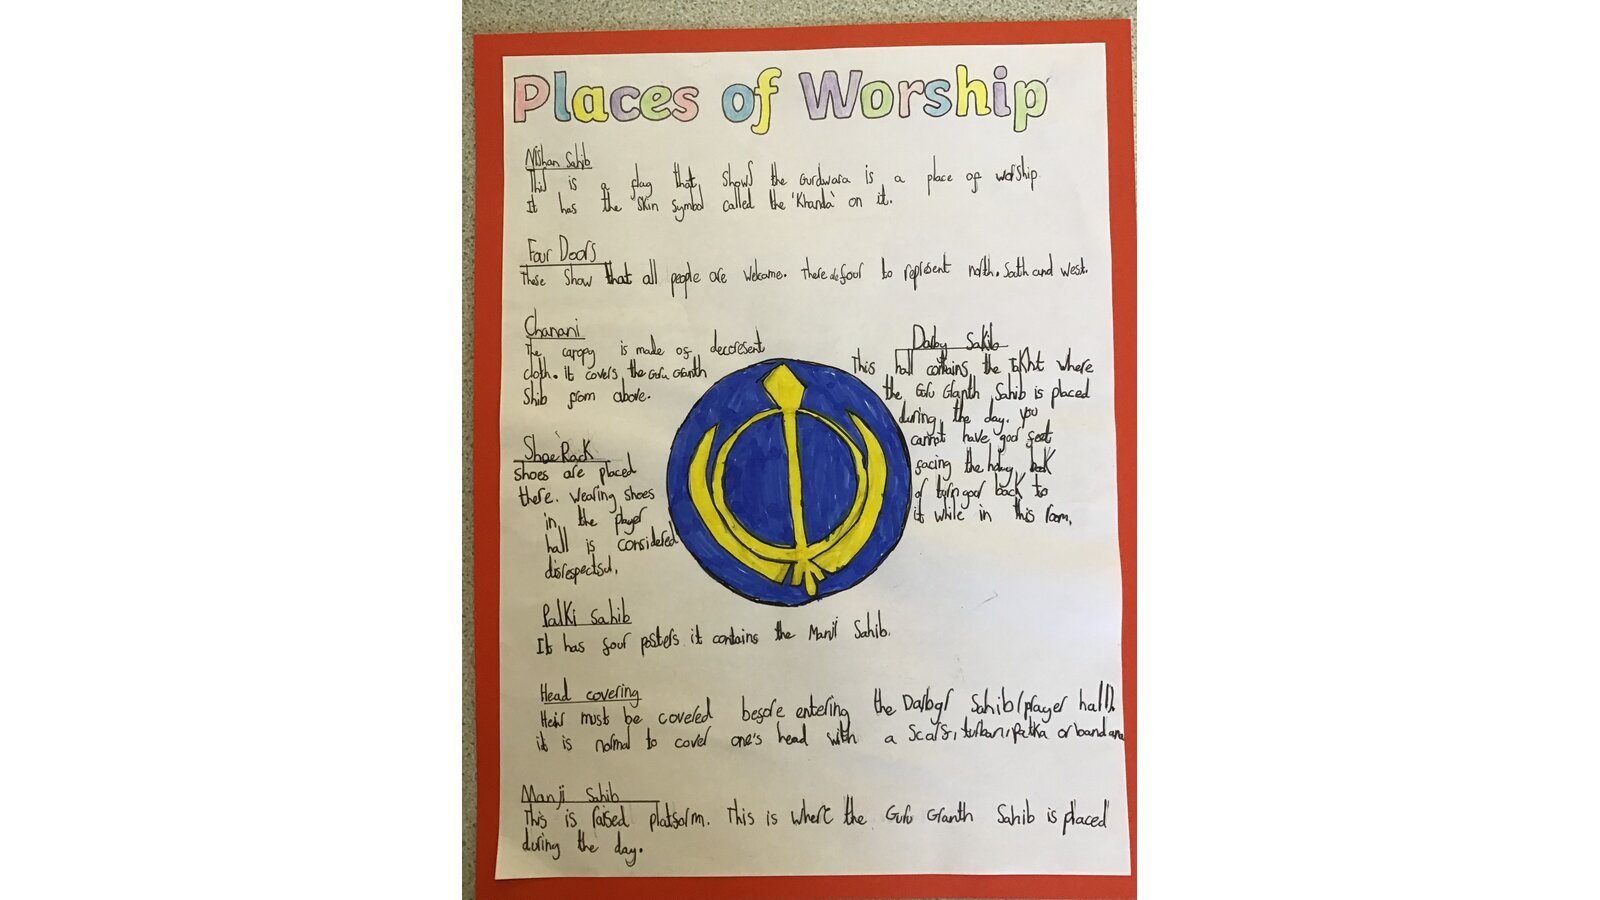 Places of Worship
Nishan Sahib
This is a flag that shows the Gurdwara is a place of worship
It has the skin symbol called the 'Khanda' on it.
Four Doors
These show that all people are welcome. There are four to represent north. South and west.
Chanani
The canopy is made of decoresent
cloth. it covers the Guru Granth
Shib from above.
Darby Sakib
This hall contains the Takht where
the Guru Granth Sahib is placed
during the day. you
cannot have your feet
facing the holey book
or turn your back to
it while in this room.
Shoe Rack
Shoes are placed
there. Wearing shoes
in the player
hall is considered
disrespectful.
Palki Sahib
It has four posters it contains the Manji Sahib.
Head covering
Heir must be covered before entering the Darbar Sahib (prayer hall).
it is normal to cover one's head with a scarf, turban, patka or bandana
Manji Sahib
This is raised platform. This is where the Guru Granth Sahib is placed
during the day.